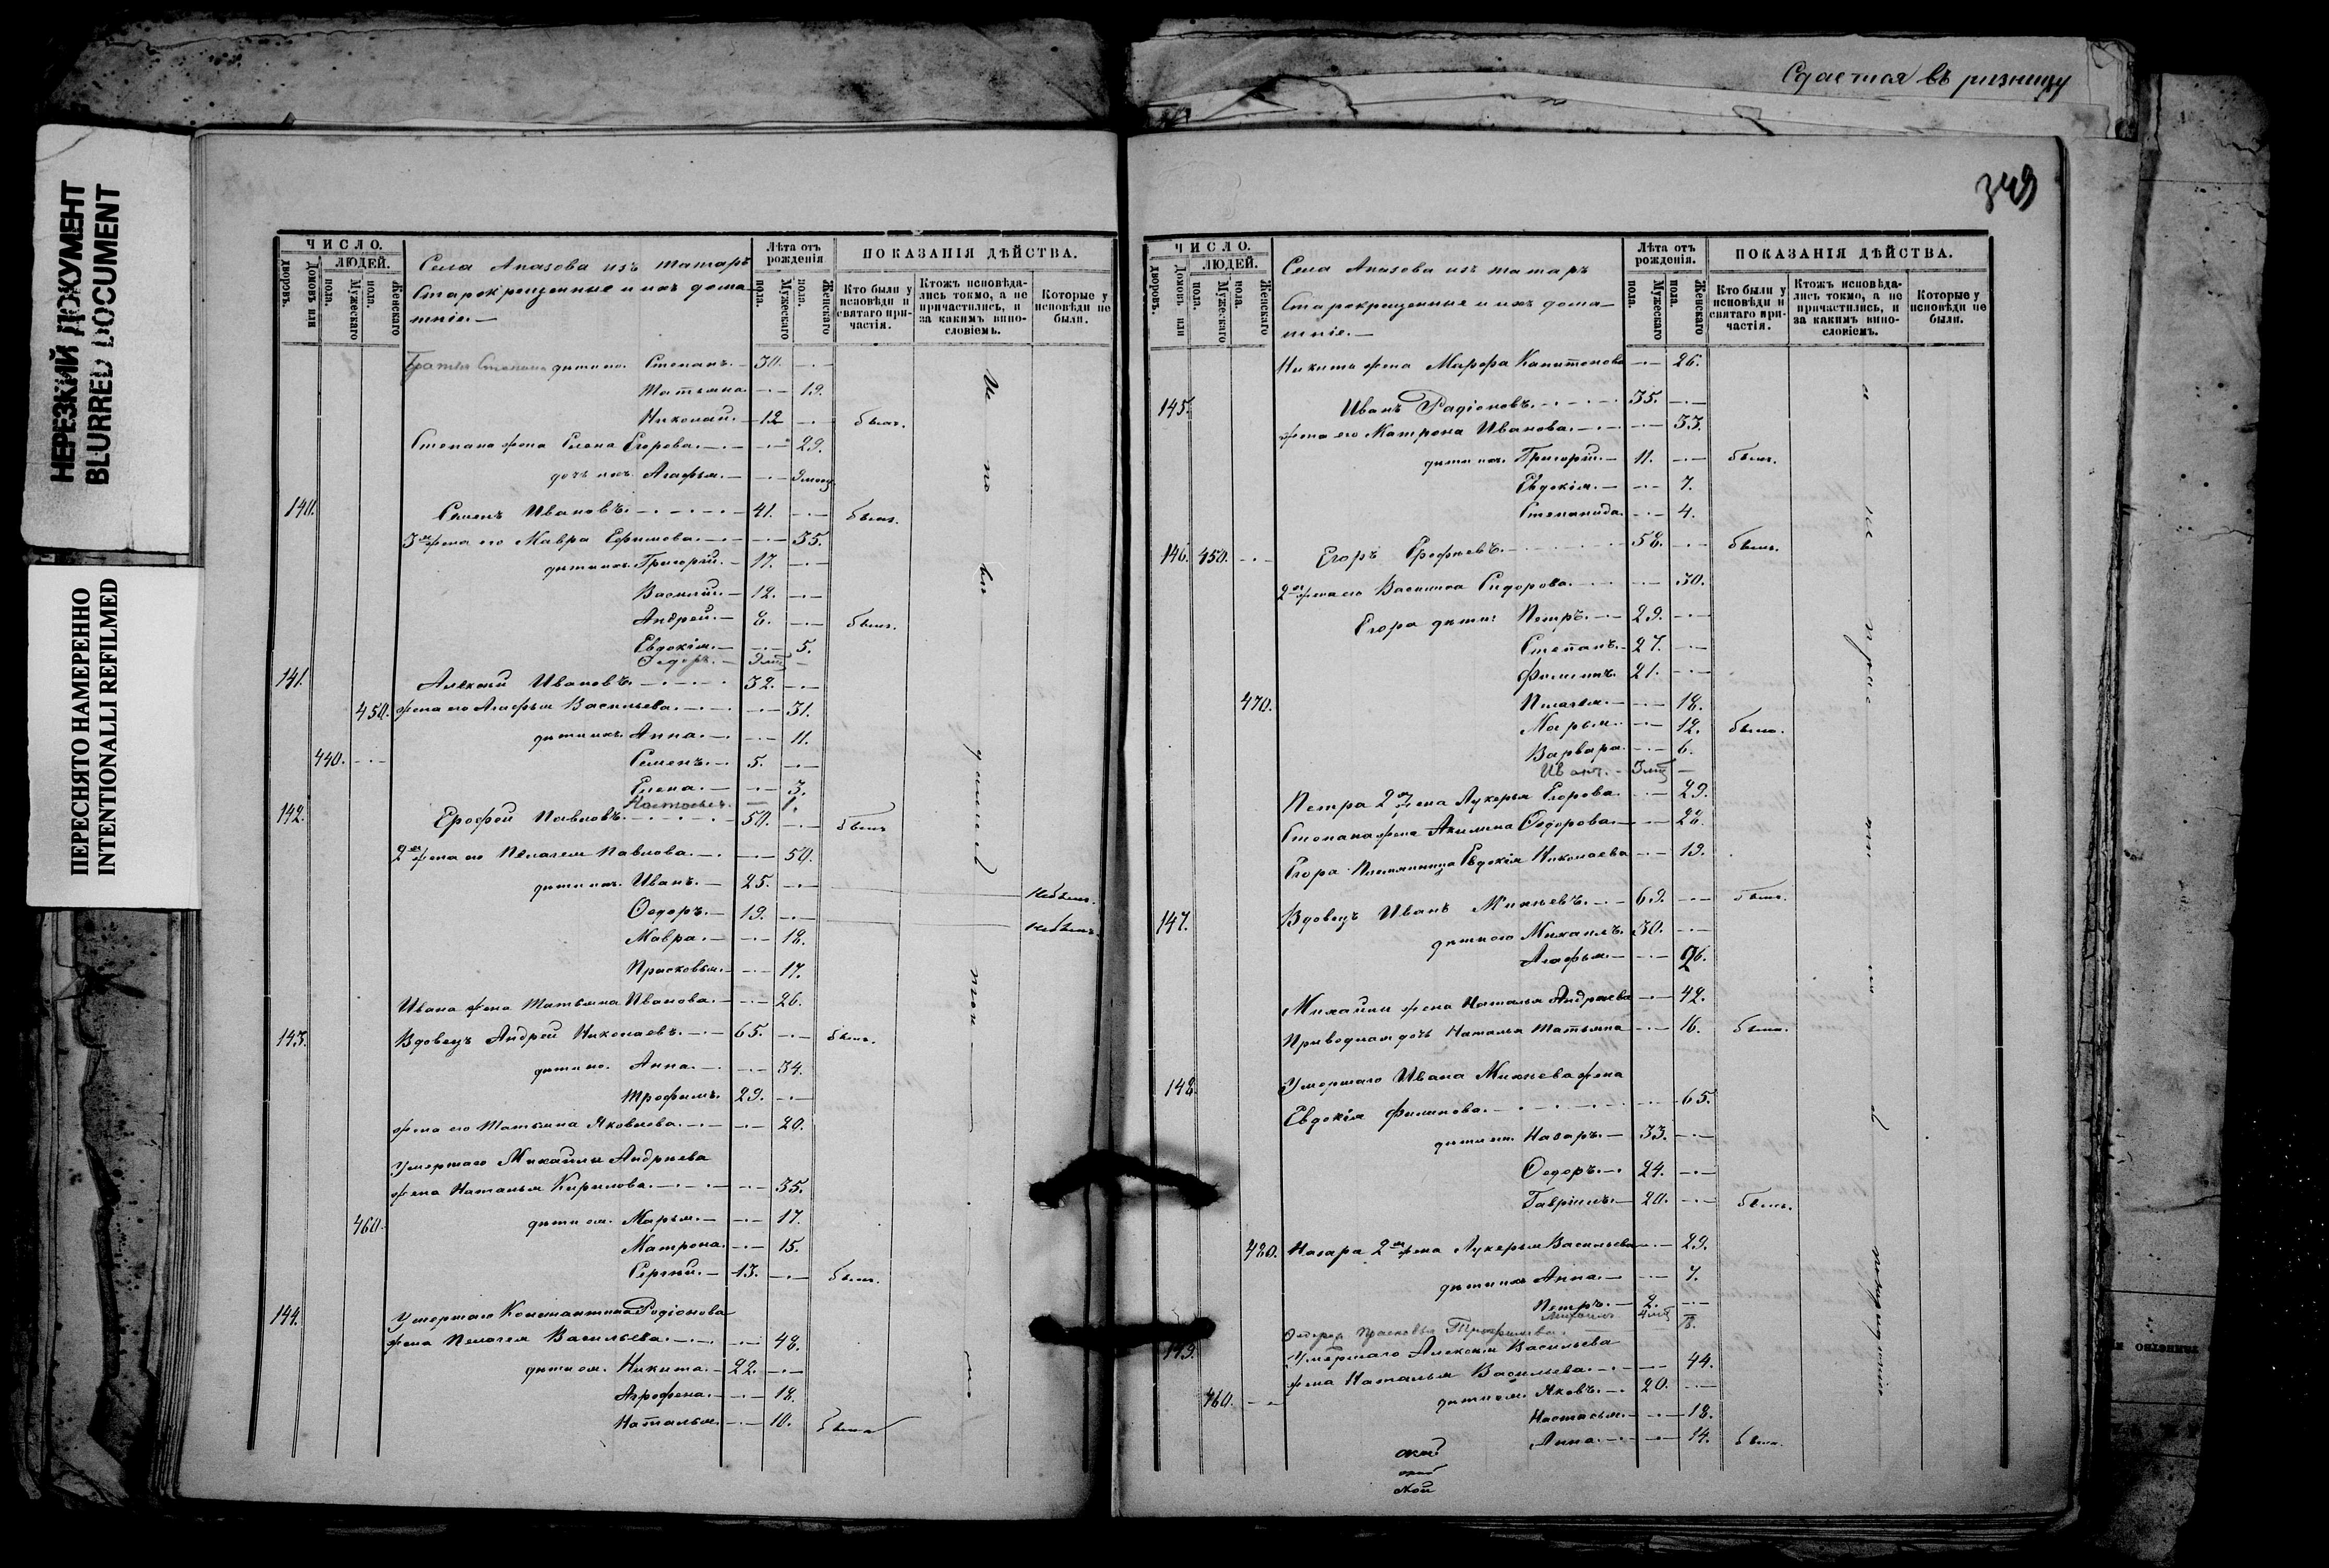 Сдается въ ризницу
349
НЕРЕЗКИЙ ДОКУМЕНТ
BLURRED DOCUMENT
ПЕРЕСНЯТО НАМЕРЕННО
INTENTIONALLI REFILMED
ЧИСЛО.
ЛЮДЕЙ.
Домовъ или дворовъ.
Мужескаго пола.
Женскаго
Села Апазова изъ татаръ
Старокрещенные и ихъ дома-
шніе.—
Лѣта отъ рожденія
Мужескаго пола.
Женскаго пола.
ПОКАЗАНІЯ ДѢЙСТВА.
Кто были у исповѣди и святаго причастія.
Ктожъ исповѣдались токмо, а не причастились, и за какимъ винословіемъ.
Которые у исповѣди не были.
дѣти его Степанъ. 30.
Татьяна. 19.
Николай. 12 былъ.
Степана жена Елена Егорова. 29.
дочь ихъ Агафья. 9 мѣсяц.
140. Семенъ Ивановъ. 41. былъ.
3я жена его Мавра Ефимова. 35.
дѣти ихъ Григорій. 17.
Василій. 12.
Андрей. 8. былъ.
Евдокія. 5.
Ѳедоръ. 9 мѣ
141. Алексѣй Ивановъ. 32.
450. жена его Агафья Васильева. 31.
дѣти ихъ Анна. 11.
440. Семенъ. 5.
Елена. 3.
Настасья. 1.
142. Ерофей Павловъ. 50. былъ
2я жена его Пелагея Павлова. 50.
дѣти ихъ Иванъ. 25. небылъ.
Ѳедоръ. 19. небылъ.
Мавра. 18.
Прасковья. 17.
Ивана жена Татьяна Иванова. 26.
143. Вдовецъ Андрей Николаевъ. 65. былъ.
дѣти его Анна. 34.
Трофимъ. 29.
жена его Татьяна Яковлева. 20.
Умершаго Михайлы Андреева
жена Наталья Кирилова. 35.
460. дѣти ея Марья. 17.
Матрена. 15.
Сергѣй. 13. былъ.
144. Умершаго Константина Родіонова
жена Пелагея Васильева. 48.
дѣти ея Никита. 22.
Агрофена. 18.
Наталья. 10. была
ЧИСЛО.
ЛЮДЕЙ.
Домовъ или дворовъ.
Мужескаго пола.
Женскаго
Села Апазова изъ татаръ
Старокрещенные и ихъ дома-
шніе.—
Лѣта отъ рожденія.
Мужескаго пола.
Женскаго пола.
ПОКАЗАНІЯ ДѢЙСТВА.
Кто были у исповѣди и святаго причастія.
Ктожъ исповѣдались токмо, а не причастились, и за какимъ винословіемъ.
Которые у исповѣди не были.
Никиты жена Марфа Капитонова 26.
145. Иванъ Радіоновъ. 35.
жена его Матрена Иванова. 33.
дѣти ихъ Григорій. 11. былъ.
Евдокія. 7.
Степанида. 4.
146. 450. Егоръ Ерофеевъ. 58. былъ.
2я жена его Василиса Сидорова. 30.
Егора дѣти: Петръ. 29.
Степанъ. 27.
Филипъ. 21.
470. Пелагея. 18.
Марья. 12. была.
Варвара. 6.
Иванъ. 3 мѣ
Петра 2я жена Лукерья Егорова. 29.
Степана жена Акилина Ѳедорова 28.
Егора Племянница Евдокія Николаева 19.
147. Вдовецъ Иванъ Михеевъ. 69. былъ.
дѣти его Михаилъ. 30.
Агафья. 26.
Михайлы жена Наталья Андреева 42.
Приводная дочь Натальи Татьяна 16. была.
148. Умершаго Ивана Михеева жена
Евдокія Филипова. 65.
дѣти ея Назаръ. 33.
Ѳедоръ. 24.
Гаврилъ. 20. былъ.
480. Назара 2я жена Лукерья Васильева 29.
дѣти ихъ Анна. 7.
Петръ. 2.
Михаилъ 4 мѣ
Ѳедора Прасковья Трофимова.
149. Умершаго Алексѣя Васильева
жена Наталья Васильева. 44.
460. дѣти ея Яковъ. 20.
Настасья. 18.
Анна. 14. была.